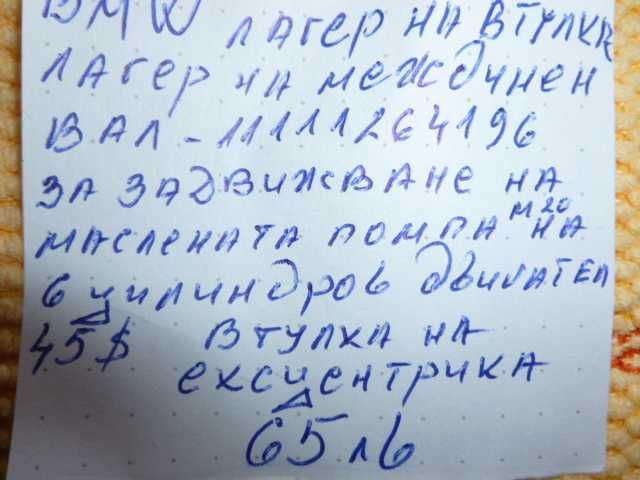 BMW ЛАГЕР НА ВТУЛКА
ЛАГЕР НА МЕЖДИНЕН
ВАЛ - 11111264196
ЗА ЗАДВИЖВАНЕ НА
МАСЛЕНАТА ПОМПА М20 НА
6 ЦИЛИНДРОВ ДВИГАТЕЛ
45$ ВТУЛКА НА
ЕКСЦЕНТРИКА
65 лв